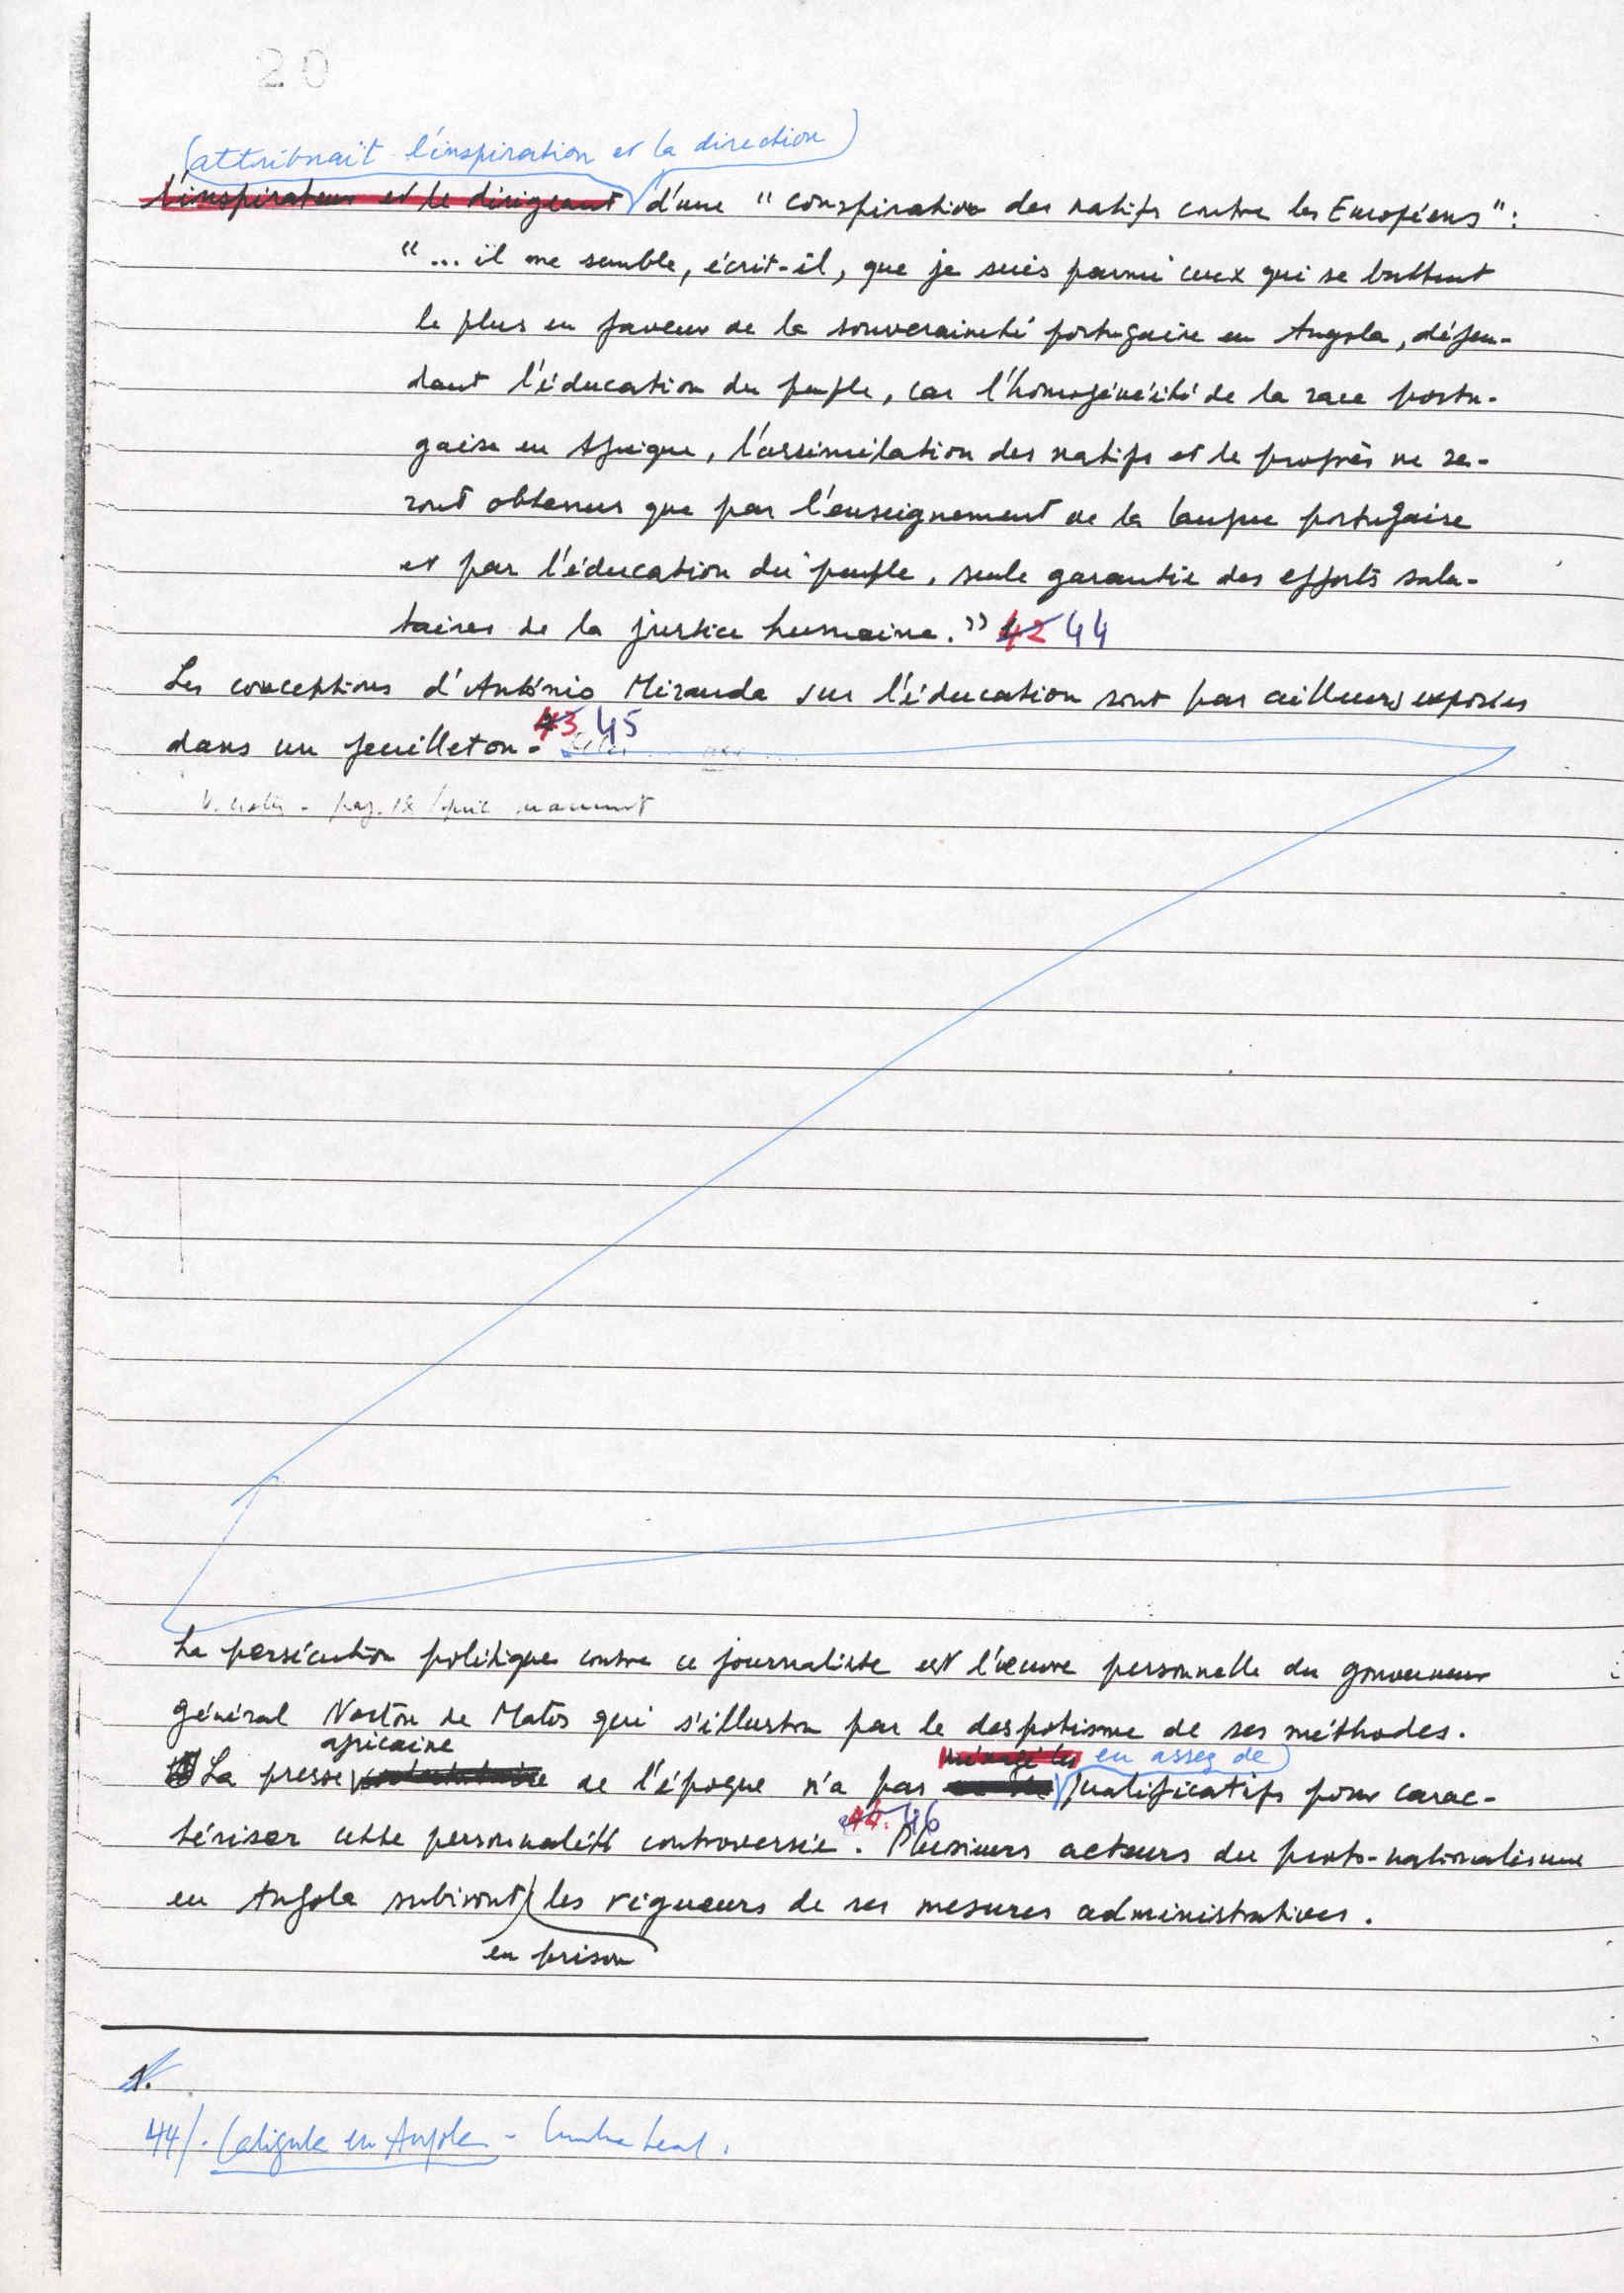 20
(attribuait l'inspiration et la direction)
l'inspirateur et le dirigeant d'une "conspiration des natifs contre les Européens":
"... il me semble, écrit-il, que je suis parmi ceux qui se battent
le plus en faveur de la souveraineté portugaise en Angola, défen-
dant l'éducation du peuple, car l'homogénéité de la race portu-
gaise en Afrique, l'assimilation des natifs et le progrès ne se-
ront obtenus que par l'enseignement de la langue portugaise
et par l'éducation du peuple, seule garantie des efforts salu-
taires de la justice humaine." 42 44
Les conceptions d'António Miranda sur l'éducation sont par ailleurs exposées
43 45
dans un feuilleton.
La persécution politique contre ce journaliste est l'œuvre personnelle du gouverneur
général Norton de Matos qui s'illustra par le despotisme de ses méthodes.
africaine ménagé les en assez de
La presse de l'époque n'a pas qualificatifs pour carac-
44. 46
tériser cette personnalité controversée. Plusieurs acteurs du proto-nationalisme
en Angola subiront les rigueurs de ses mesures administratives.
en prison
1.
44/. Caligula en Angola - Cunha Leal.